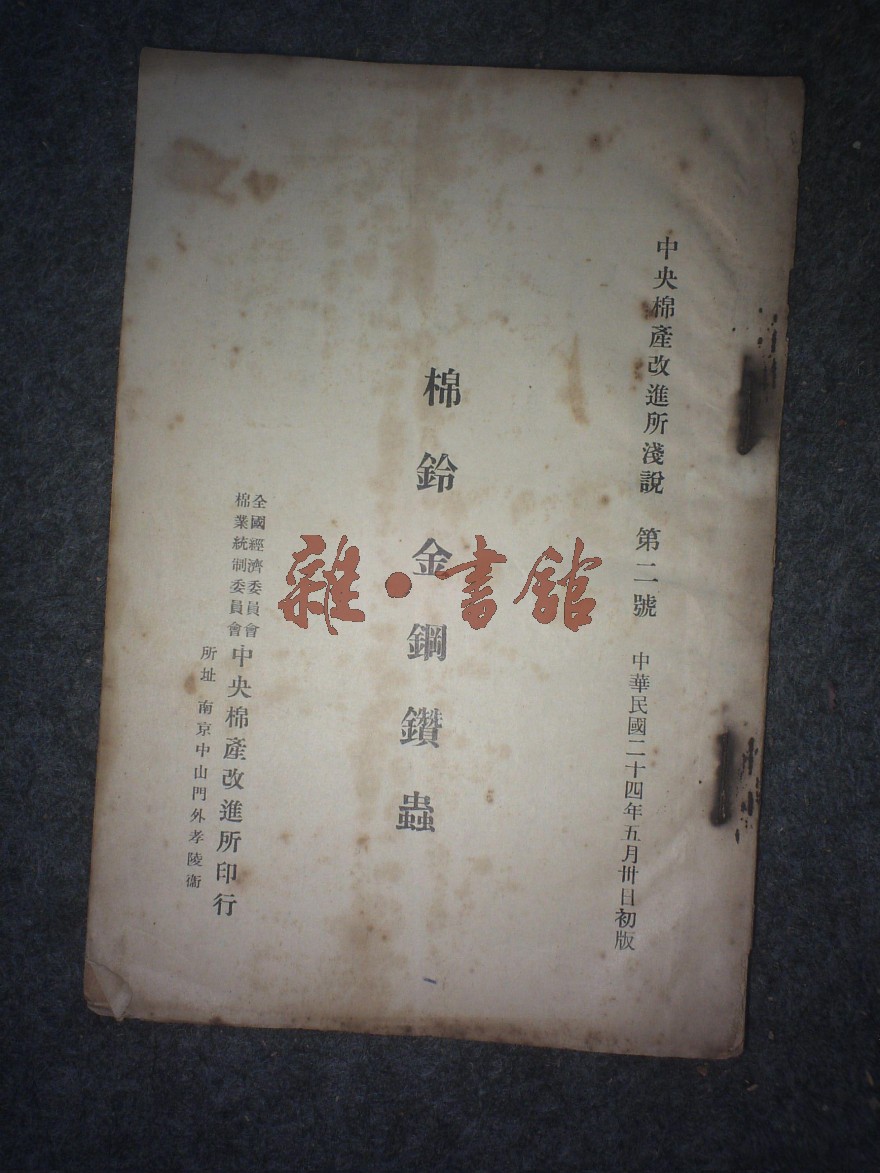 中央棉產改進所淺說 第二號 中華民國二十四年五月卅日初版
棉鈴金鋼鑽蟲
全國經濟委員會
棉業統制委員會
中央棉產改進所印行
所址 南京中山門外孝陵衞
雜·書館